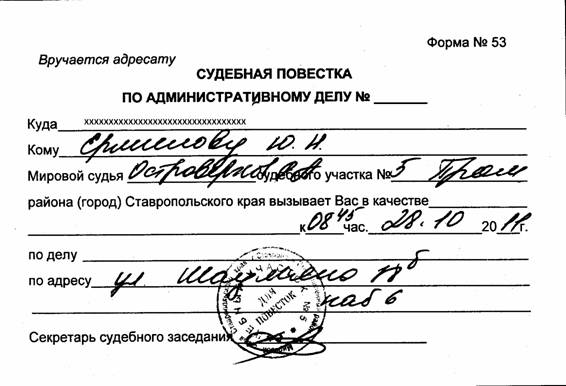 Форма № 53
Вручается адресату
СУДЕБНАЯ ПОВЕСТКА
ПО АДМИНИСТРАТИВНОМУ ДЕЛУ № ______
Куда xxxxxxxxxxxxxxxxxxxxxxxxxxxxxxxxxx
Кому Ермилову Ю. Н.
Мировой судья судебного участка № 5 Пром
района (город) Ставропольского края вызывает Вас в качестве
к 08 45 час. 28.10 2011г.
по делу
по адресу ул. Шаумяна
каб 6
для
повесток
Секретарь судебного заседания